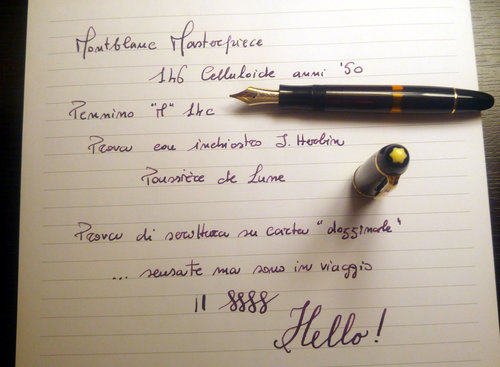 Montblanc Masterpiece
146 Celluloide anni '50
Pennino "M" 14c
Prova con inchiostro J. Herbin
Poussière de Lune
Prova di scrittura su carta "dozzinale"
... scusate ma sono in viaggio
Hello!